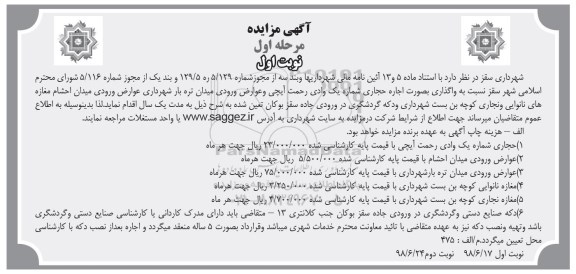 آگهی مزایده
مرحله اول
نوبت اول
شهرداری سقز در نظر دارد با استناد ماده ۵ و۱۳ آئین نامه مالی شهرداریها وبند سه از مجوزشماره ۵/۱۲۹ ره ۱۲۹/۵ و بند یک از مجوز شماره ۵/۱۱۶ شورای محترم
اسلامی شهر سقز نسبت به واگذاری بصورت اجاره حجاری شماره یک وادی رحمت آیچی وعوارض ورودی میدان تره بار شهرداری عوارض ورودی میدان احشام مغازه
های نانوایی ونجاری کوچه بن بست شهرداری ودکه گردشگری در ورودی جاده سقز بوکان تعین شده به شرح ذیل به مدت یک سال اقدام نماید.لذا بدینوسیله به اطلاع
عموم متقاضیان میرساند جهت اطلاع از شرایط شرکت درمزایده به سایت شهرداری به آدرس www.saggez.ir یا واحد مستغلات مراجعه نمایند.
الف – هزینه چاپ آگهی به عهده برنده مزایده خواهد بود.
۱)حجاری شماره یک وادی رحمت آیچی با قیمت پایه کارشناسی شده ۲۳/۰۰۰/۰۰۰ ریال جهت هر ماه
۲)عوارض ورودی میدان احشام با قیمت پایه کارشناسی شده ۵/۵۰۰/۰۰۰ ریال جهت هرماه
۳)عوارض ورودی میدان تره بارشهرداری با قیمت پایه کارشناسی شده ۷۵/۰۰۰/۰۰۰ ریال جهت هرماه
۴)مغازه نانوایی کوچه بن بست شهرداری با قیمت پایه کارشناسی شده ۳/۲۵۰/۰۰۰ ریال جهت هرماه
۵)مغازه نجاری کوچه بن بست شهرداری با قیمت پایه کارشناسی شده ۴/۷۰۰/۰۰۰ ریال جهت هر ماه
۶)دکه صنایع دستی وگردشگری در ورودی جاده سقز بوکان جنب کلانتری ۱۳ – متقاضی باید دارای مدرک کاردانی یا کارشناسی صنایع دستی وگردشگری
باشد وتهیه ونصب دکه نیز به عهده متقاضی با تائید معاونت محترم خدمات شهری میباشد وقرارداد بصورت ۵ ساله منعقد میگردد و اجاره بعداز نصب دکه با کارشناسی
محل تعیین میگردد.م/الف : ۴۷۵
نوبت اول ۹۸/۶/۱۷ نوبت دوم۹۸/۶/۲۴